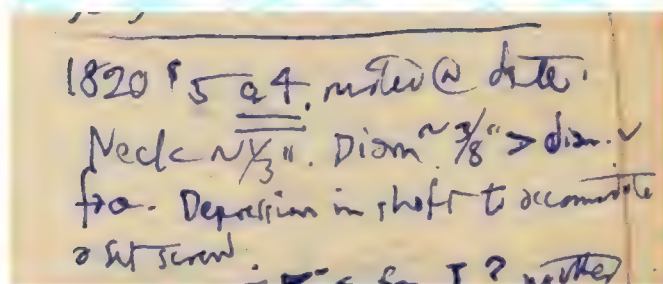 1820 $5 a4. noted @ date.
Neck ~1/3". Diam ~3/8" > diam. v
fra. Depression in shaft to accomodate
a set screw
for I?